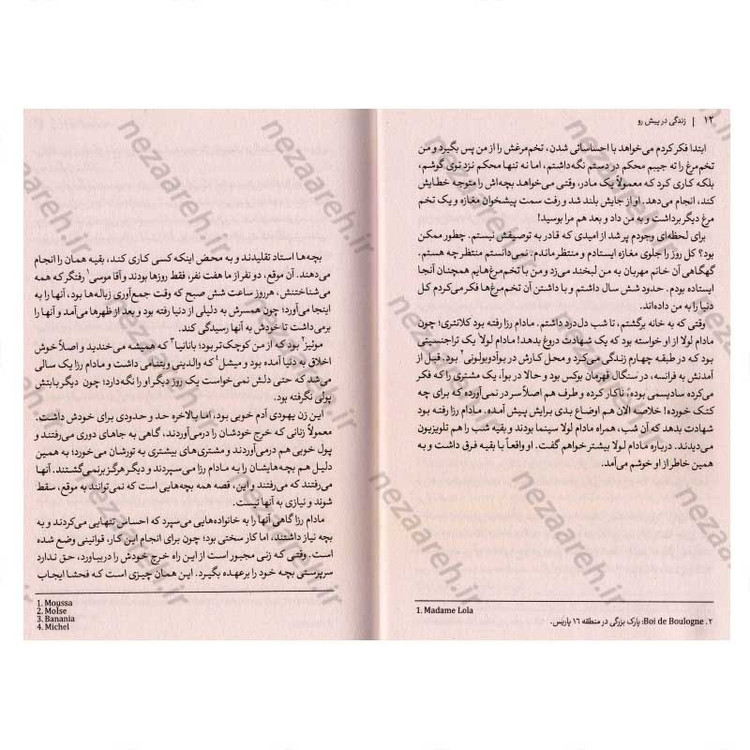 ۱۲ | زندگی در پیش رو
ابتدا فکر کردم می‌خواهد با احساساتی شدن، تخم‌مرغش را از من پس بگیرد و من
تخم‌مرغ را ته جیبم محکم در دستم نگه‌داشتم، اما نه تنها محکم نزد توی گوشم،
بلکه کاری کرد که معمولاً یک مادر، وقتی می‌خواهد بچه‌اش را متوجه خطایش
کند، انجام می‌دهد. او از جایش بلند شد و رفت سمت پیشخوان مغازه و یک تخم
مرغ دیگر برداشت و به من داد و بعد هم مرا بوسید!
برای لحظه‌ای وجودم پر شد از امیدی که قادر به توصیفش نیستم. چطور ممکن
بود؟ کل روز را جلوی مغازه ایستادم و منتظر ماندم. نمی‌دانستم منتظر چه هستم.
گهگاهی آن خانم مهربان به من لبخند می‌زد و من با تخم‌مرغ‌هایم همچنان آنجا
ایستاده بودم. حدود شش سال داشتم و با داشتن آن تخم‌مرغ‌ها فکر می‌کردم کل
دنیا را به من داده‌اند.
وقتی که به خانه برگشتم، تا شب دل‌درد داشتم. مادام رزا رفته بود کلانتری؛ چون
مادام لولا از او خواسته بود که یک شهادت دروغ بدهد! مادام لولا¹ یک تراجنسیتی
بود که در طبقه چهارم زندگی می‌کرد و محل کارش در بوآدوبولونی² بود. قبل از
آمدنش به فرانسه، در سنگال قهرمان بوکس بود و حالا در بوآ، یک مشتری را که فکر
می‌کرده سادیسمی بوده؛ ناکار کرده و طرف هم اصلاً سر در نمی‌آورده که برای چه
کتک خورده! خلاصه الان هم اوضاع بدی برایش پیش آمده. مادام رزا رفته بود
شهادت بدهد که آن شب، همراه مادام لولا سینما بودند و بقیه شب را هم تلویزیون
می‌دیدند. درباره مادام لولا بیشتر خواهم گفت. او واقعاً با بقیه فرق داشت و به
همین خاطر از او خوشم می‌آمد.
1. Madame Lola
۲. Boi de Boulogne: پارک بزرگی در منطقه ۱۶ پاریس.
بچه‌ها استاد تقلیدند و به محض اینکه کسی کاری کند، بقیه همان را انجام
می‌دهند. آن موقع، دو نفر از ما هفت نفر، فقط روزها بودند و آقا موسی¹ رفتگر که همه
می‌شناختنش، هرروز ساعت شش صبح که وقت جمع‌آوری زباله‌ها بود، آنها را به
اینجا می‌آورد؛ چون همسرش به دلیلی از دنیا رفته بود و بعد از ظهرها می‌آمد و آنها را
برمی‌داشت تا خودش به آنها رسیدگی کند.
موئیز² بود که از من کوچک‌تر بود؛ بانانیا³ که همیشه می‌خندید و اصلاً خوش
اخلاق به دنیا آمده بود و میشل⁴ که والدینی ویتنامی داشت و مادام رزا یک سالی
می‌شد که حتی دلش نمی‌خواست یک روز دیگر او را نگه‌دارد؛ چون دیگر بابتش
پولی نگرفته بود.
این زن یهودی آدم خوبی بود، اما بالاخره حد و حدودی برای خودش داشت.
معمولاً زنانی که خرج خودشان را درمی‌آوردند، گاهی به جاهای دوری می‌رفتند و
پول خوبی هم درمی‌آوردند و مشتری‌های بیشتری به تورشان می‌خورد؛ به همین
دلیل هم بچه‌هایشان را به مادام رزا می‌سپردند و دیگر هرگز برنمی‌گشتند. آنها
می‌رفتند که می‌رفتند و این، قصه همه بچه‌هایی است که نمی‌توانند به موقع، سقط
شوند و نیازی به آنها نیست.
مادام رزا گاهی آنها را به خانواده‌هایی می‌سپرد که احساس تنهایی می‌کردند و به
بچه نیاز داشتند، اما کار سختی بود؛ چون برای انجام این کار، قوانینی وضع شده
است. وقتی که زنی مجبور است از این راه خرج خودش را دربیاورد، حق ندارد
سرپرستی بچه خود را برعهده بگیرد. این همان چیزی است که فحشا ایجاب
1. Moussa
2. Moïse
3. Banania
4. Michel
nezaareh.ir
nezaareh.ir
nezaareh.ir
nezaareh.ir
nezaareh.ir
nezaareh.ir
nezaareh.ir
nezaareh.ir